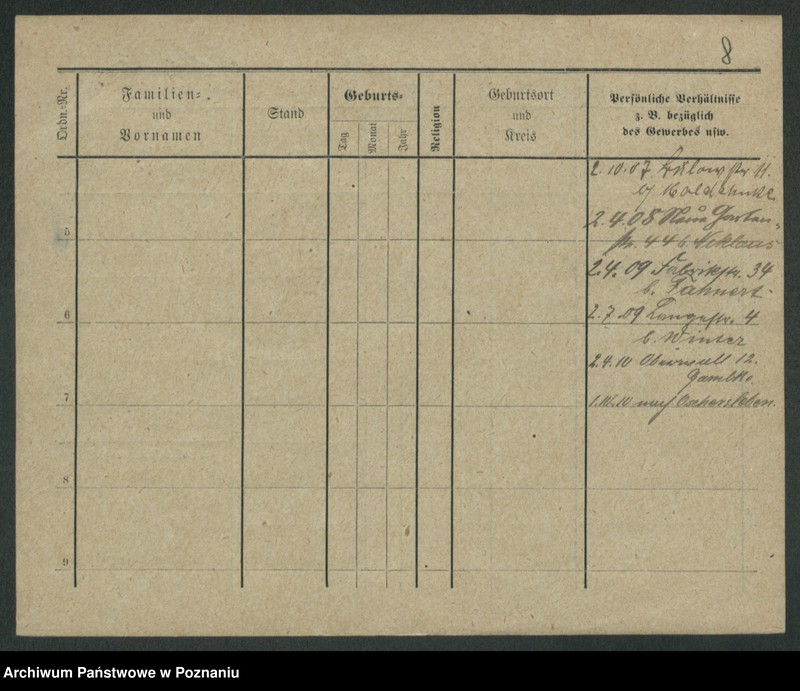 8
Ordn.-Nr.
Familien-
und
Vornamen
Stand
Geburts-
Tag
Monat
Jahr
Religion
Geburtsort
und
Kreis
Persönliche Verhältnisse
z. B. bezüglich
des Gewerbes usw.
2.10.07 str 11.
b/
5
2.4.08 Neue Garten-
str. 44 b. Niklaus
2.4.09 Fabrikstr. 34
b. Jahnert.
6
2.7.09 Langestr. 4
b. Winter
2.4.10 Oberwall 12.
7
1.10.10 nach Oschersleben.
8
9
Archiwum Państwowe w Poznaniu